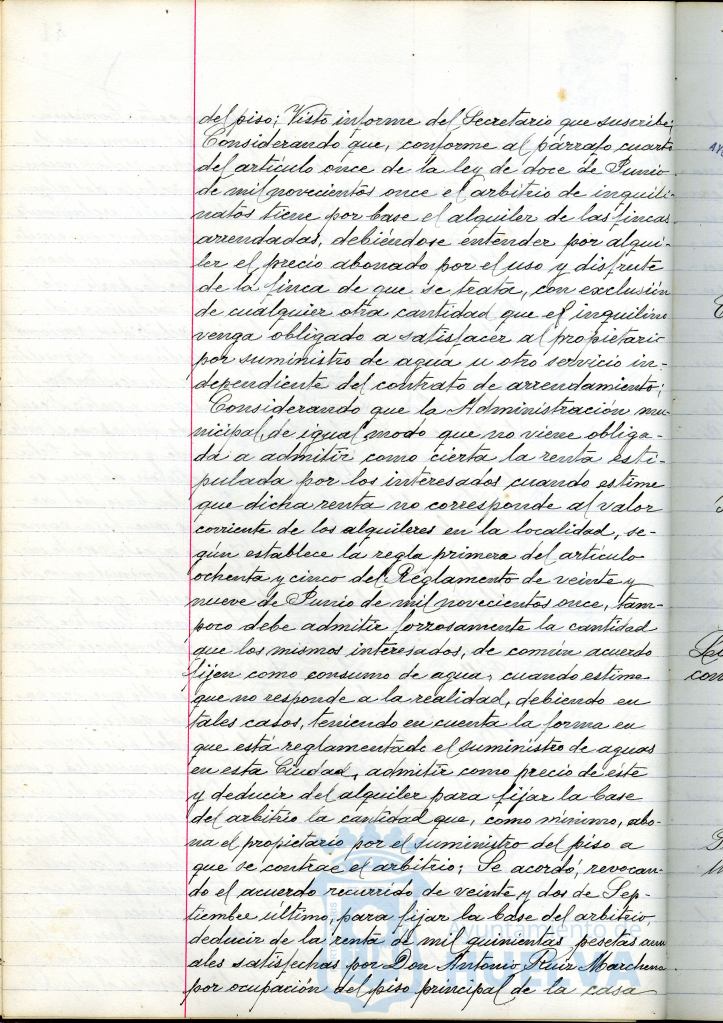 del piso; Visto informe del Secretario que suscribe;
Considerando que, conforme al párrafo cuarto
del artículo once de la ley de doce de Junio
de mil novecientos once el arbitrio de inquili-
natos tiene por base el alquiler de las fincas
arrendadas, debiéndose entender por alqui-
ler el precio abonado por el uso y disfrute
de la finca de que se trata, con exclusión
de cualquier otra cantidad que el inquilino
venga obligado a satisfacer al propietario
por suministro de agua u otro servicio in-
dependiente del contrato de arrendamiento;
Considerando que la Administración mu-
nicipal, de igual modo que no viene obliga-
da a admitir como cierta la renta esti-
pulada por los interesados cuando estime
que dicha renta no corresponde al valor
corriente de los alquileres en la localidad, se-
gún establece la regla primera del artículo
ochenta y cinco del Reglamento de veinte y
nueve de Junio de mil novecientos once, tam-
poco debe admitir forzosamente la cantidad
que los mismos interesados, de común acuerdo
fijen como consumo de agua, cuando estime
que no responde a la realidad, debiendo en
tales casos, teniendo en cuenta la forma en
que está reglamentado el suministro de aguas
en esta Ciudad, admitir como precio de éste
y deducir del alquiler para fijar la base
del arbitrio la cantidad que, como mínimo, abo-
na el propietario por el suministro del piso a
que se contrae el arbitrio; Se acordó, revocan-
do el acuerdo recurrido de veinte y dos de Sep-
tiembre último, para fijar la base del arbitrio,
deducir de la renta de mil quinientas pesetas anu-
ales satisfechas por Don Antonio Ruiz Marchena
por ocupación del piso principal de la casa
Ayuntamiento de
HUELVA